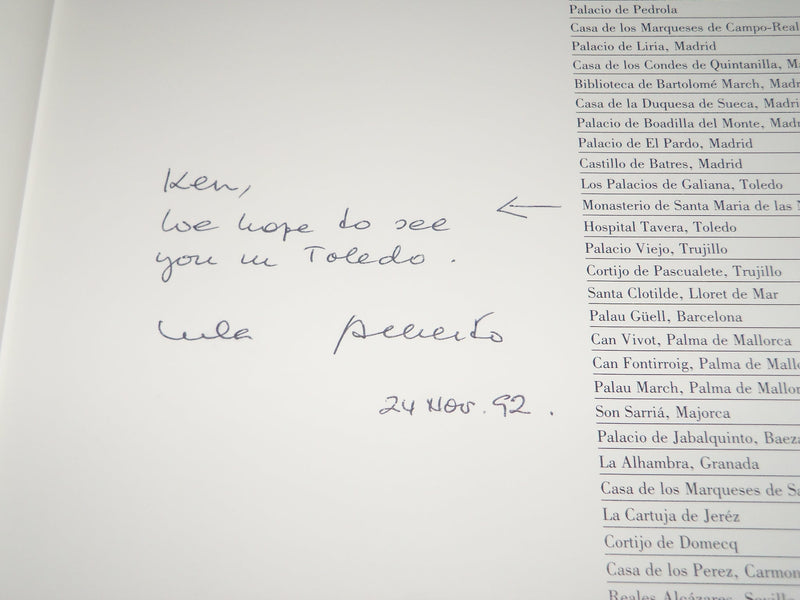 Ken,
We hope to see
you in Toledo.
Alberto
24 Nov. 92.
Palacio de Pedrola
Casa de los Marqueses de Campo-Real
Palacio de Liria, Madrid
Casa de los Condes de Quintanilla, Ma
Biblioteca de Bartolomé March, Madr
Casa de la Duquesa de Sueca, Madri
Palacio de Boadilla del Monte, Madr
Palacio de El Pardo, Madrid
Castillo de Batres, Madrid
Los Palacios de Galiana, Toledo
Monasterio de Santa Maria de las
Hospital Tavera, Toledo
Palacio Viejo, Trujillo
Cortijo de Pascualete, Trujillo
Santa Clotilde, Lloret de Mar
Palau Güell, Barcelona
Can Vivot, Palma de Mallorca
Can Fontirroig, Palma de Mallo
Palau March, Palma de Mallor
Son Sarriá, Majorca
Palacio de Jabalquinto, Baeza
La Alhambra, Granada
Casa de los Marqueses de Sa
La Cartuja de Jeréz
Cortijo de Domecq
Casa de los Perez, Carmon
Reales Alcázares, Sevilla